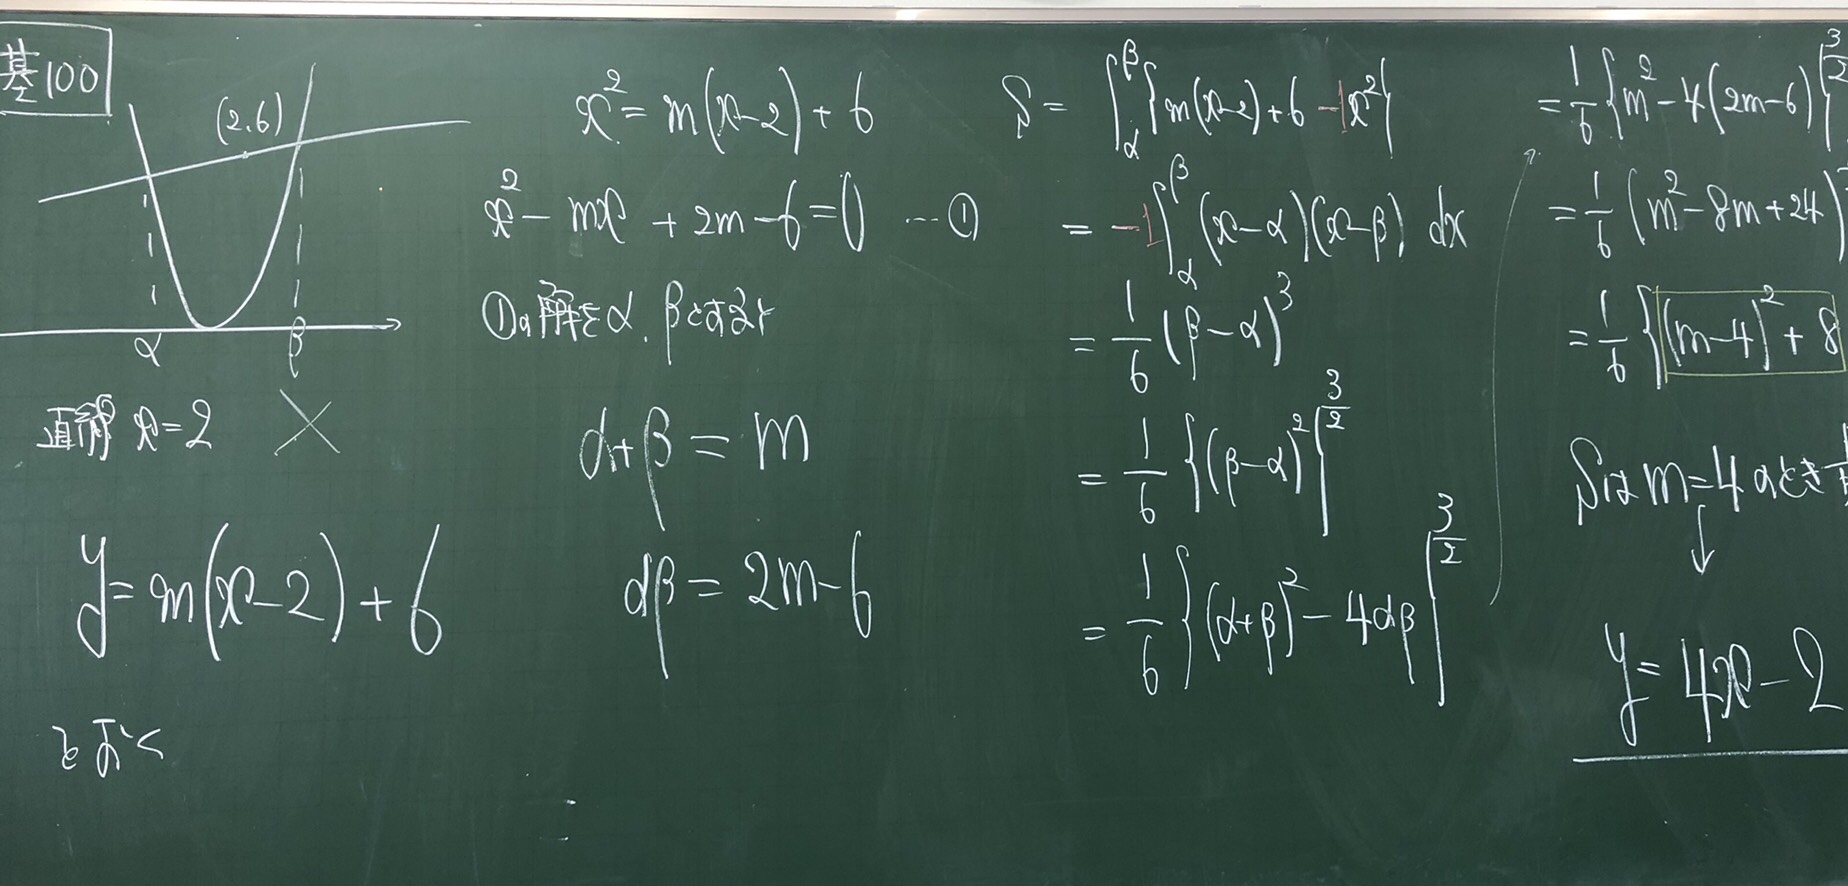 基100
(2.6)
α β
直線 x=2 ×
y=m(x-2)+6
とおく
x²=m(x-2)+6
x²-mx+2m-6=0 …①
①の解をα.βとすると
α+β=m
αβ=2m-6
S=∫_α^β{m(x-2)+6-1x²}
=-1∫_α^β(x-α)(x-β)dx
=1/6(β-α)³
=1/6{(β-α)²}^{3/2}
=1/6{(α+β)²-4αβ}^{3/2}
=1/6{m²-4(2m-6)}^{3/2}
=1/6(m²-8m+24)
=1/6{(m-4)²+8
Sはm=4のとき
↓
y=4x-2